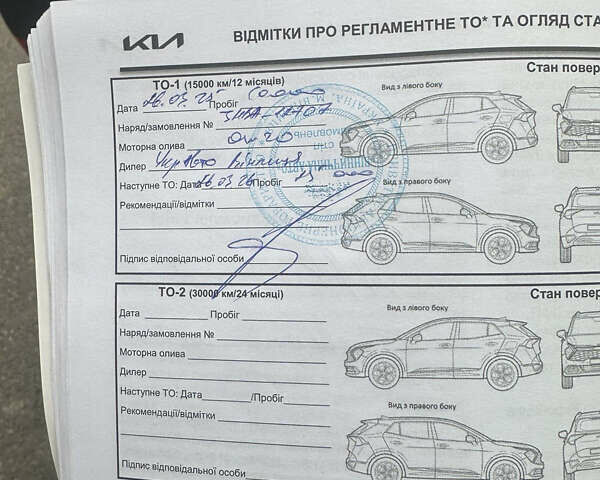 KIA ВІДМІТКИ ПРО РЕГЛАМЕНТНЕ ТО* ТА ОГЛЯД СТА
ТО-1 (15000 км/12 місяців)
Стан повер
Дата 26.03.25 Пробіг 10000
Вид з лівого боку
Наряд/замовлення №
Моторна олива 0w20
Дилер УкрАвто Вінниця
Наступне ТО: Дата 26.03.26 Пробіг 25 000
Вид з правого боку
Рекомендації/відмітки
Підпис відповідальної особи
ТО-2 (30000 км/24 місяці)
Стан повер
Дата Пробіг
Вид з лівого боку
Наряд/замовлення №
Моторна олива
Дилер
Наступне ТО: Дата /Пробіг
Вид з правого боку
Рекомендації/відмітки
Підпис відповідальної особи